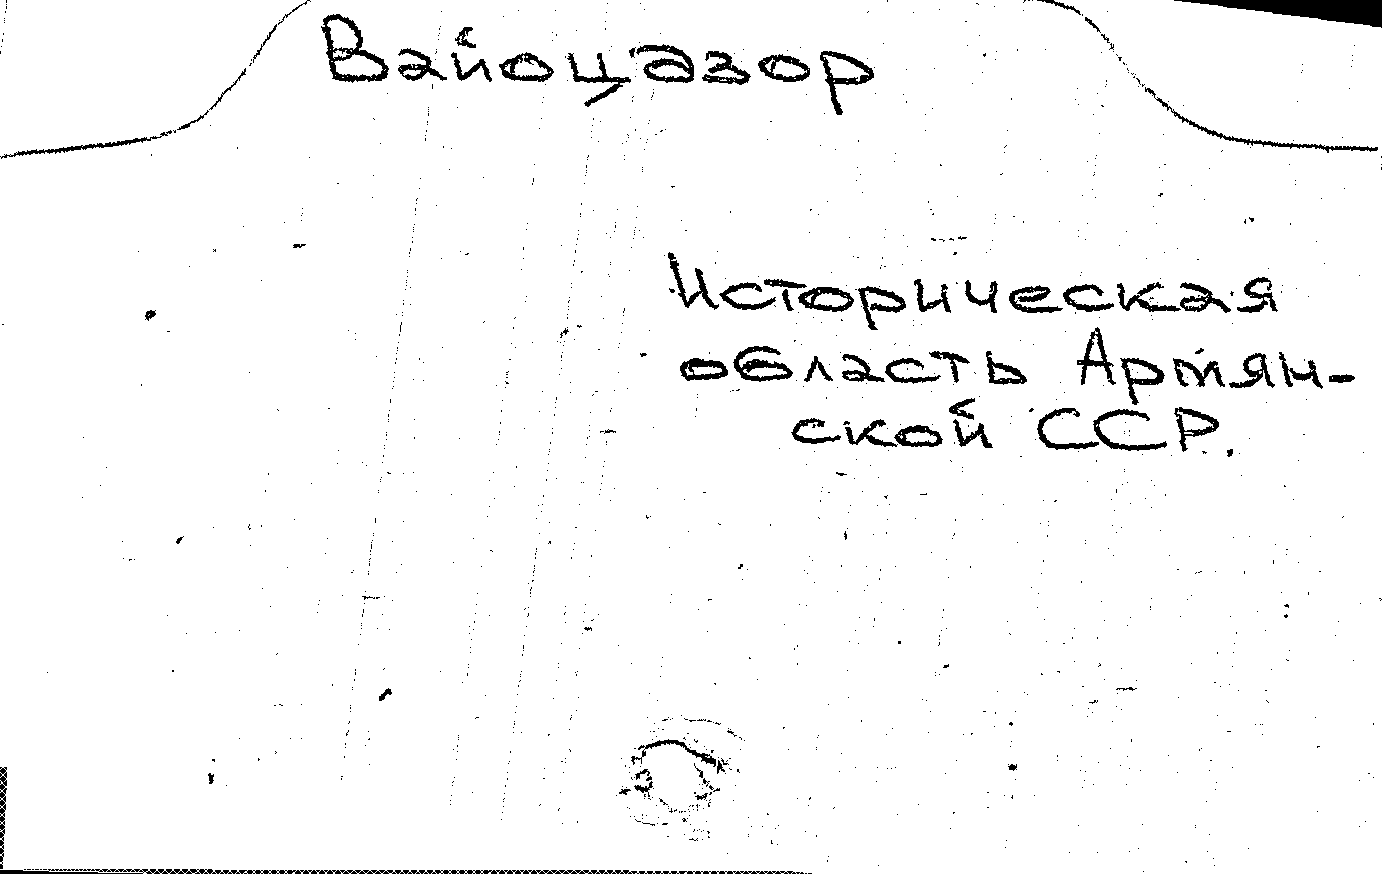 Вайоцазор
Историческая
область Армян-
ской ССР.